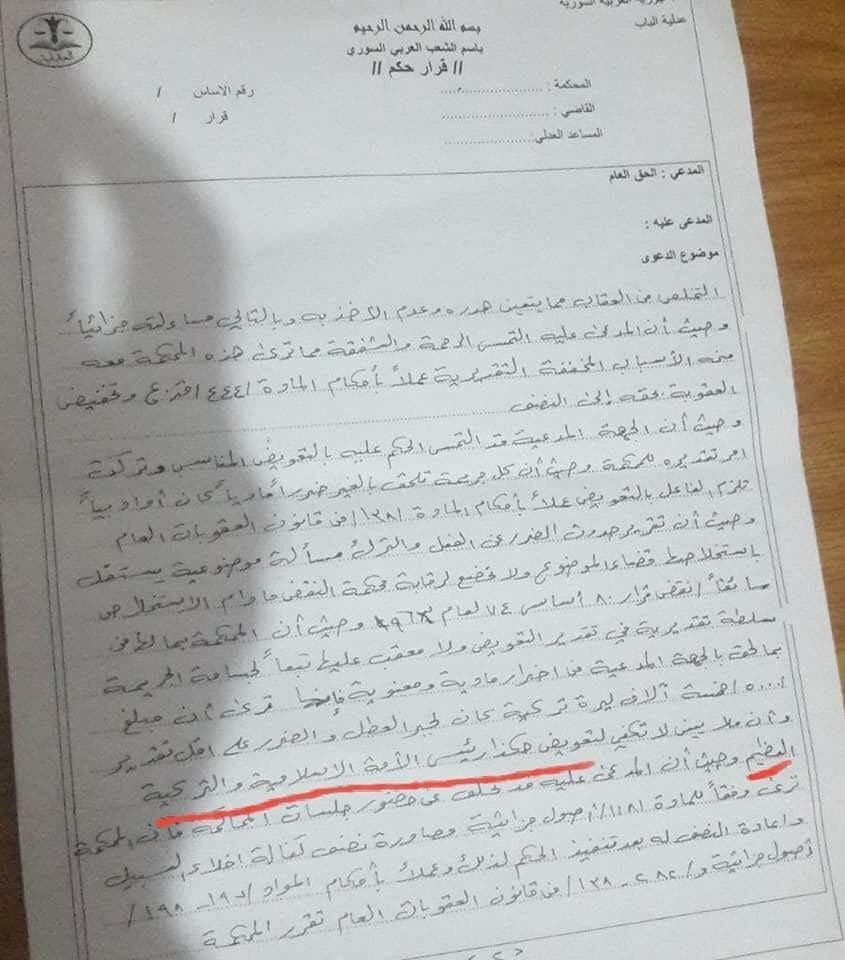 العربية السورية
عدلية الباب
بسم الله الرحمن الرحيم
باسم الشعب العربي السوري
// قرار حكم //
المحكمة : ....................
رقم الاساس /
القاضي : ....................
قرار /
المساعد العدلي:....................
المدعي : الحق العام
المدعى عليه :
موضوع الدعوى
التملص من العقاب مما يتعين هدره وعدم الأخذ به وبالتالي مساءلته جزائياً
وحيث أن المدعى عليه التمس الرحمة والشفقة مما ترى هذه المحكمة معه
منحه الأسباب المخففة التقديرية عملاً بأحكام المادة /٢٤٤/ ع وتخفيض
العقوبة بحقه إلى النصف
وحيث أن الجهة المدعية قد التمس الحكم عليه بالتعويض المناسب وتركت
امر تقديره للمحكمة وحيث أن كل جريمة تلحق بالغير ضرراً مادياً كان أو ادبياً
تلزم الفاعل بالتعويض عملاً بأحكام المادة /١٣٨/ من قانون العقوبات العام
وحيث أن تقدير حدوث الضرر عن الفعل والترك مسألة موضوعية يستقل
باستخلاصها قضاء الموضوع ولا تخضع لرقابة محكمة النقض ما دام الاستخلاص
سائغاً / نقض قرار ٨٠ أساس ٧٤ لعام وحيث أن المحكمة بما لها من
سلطة تقديرية في تقدير التعويض ولا معقب عليها تبعاً لجسامة الجريمة
بما لحق بالجهة المدعية من اضرار مادية ومعنوية فإنها ترى أن مبلغ
/٥٠٠٠/ خمسة آلاف ليرة تركية كان لجبر العطل والضرر على اقل تقدير
وأن ملايين لا تكفي لتعويض هكذا رئيس الأمة الاسلامية والتركية
العظيم وحيث أن المدعى عليه قد تخلف عن حضور جلسات المحاكمة فإن المحكمة
ترى وفقاً للمادة /١١٨/ أصول جزائية ومصادرة نصف كفالة اخلاء السبيل
واعادة النصف له بعد تنفيذ الحكم لذلك وعملاً بأحكام المواد ١٩٨/
أصول جزائية و/٢٨٢ - ١٣٨/ من قانون العقوبات العام تقرر المحكمة